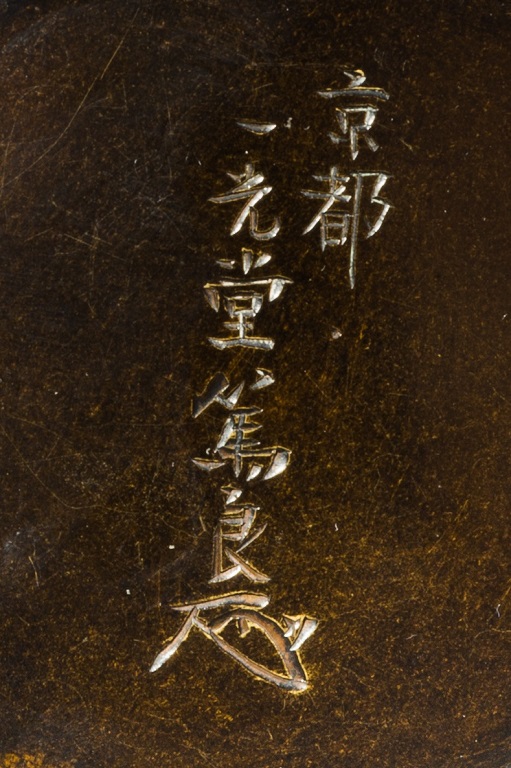 京都
一光堂篤良